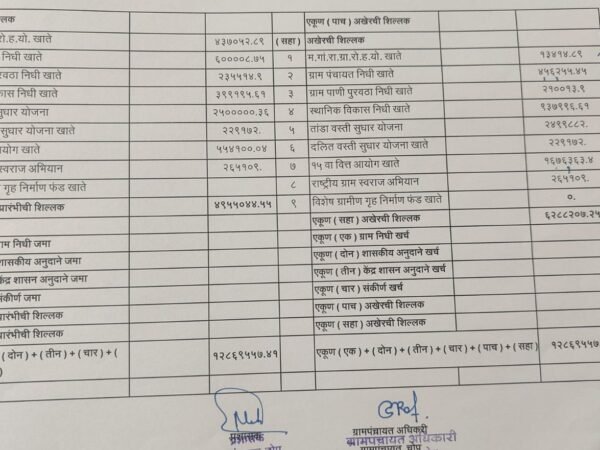 ल्लक एकूण ( पाच ) अखेरची शिल्लक
रो.ह.यो. खाते ४३७०५२.८९ ( सहा ) अखेरची शिल्लक
निधी खाते ६००००८.७५ १ म.गां.रा.ग्रा.रो.ह.यो. खाते १३४१४.८९
रवठा निधी खाते २३५५१४.९ २ ग्राम पंचायत निधी खाते ४५६२५५.४५
कास निधी खाते ३९९१९५.६१ ३ ग्राम पाणी पुरवठा निधी खाते २१००१३.९
सुधार योजना २५०००००.३६ ४ स्थानिक विकास निधी खाते ९३७९९६.६१
सुधार योजना खाते २२९१७२. ५ तांडा वस्ती सुधार योजना २४९९८८२.
आयोग खाते ५५४१००.०४ ६ दलित वस्ती सुधार योजना खाते २२९१७२.
स्वराज अभियान २६५१०९. ७ १५ वा वित्त आयोग खाते १६७६३६३.४
गृह निर्माण फंड खाते ८ राष्ट्रीय ग्राम स्वराज अभियान २६५१०९.
प्रारंभीची शिल्लक ४९५५०४४.५५ ९ विशेष ग्रामीण गृह निर्माण फंड खाते ०.
एकूण ( सहा ) अखेरची शिल्लक ६२८८२०७.२५
ग्राम निधी जमा एकूण ( एक ) ग्राम निधी खर्च
शासकीय अनुदाने जमा एकूण ( दोन ) शासकीय अनुदाने खर्च
केंद्र शासन अनुदाने जमा एकूण ( तीन ) केंद्र शासन अनुदाने खर्च
संकीर्ण जमा एकूण ( चार ) संकीर्ण खर्च
प्रारंभीची शिल्लक एकूण ( पाच ) अखेरची शिल्लक
प्रारंभीची शिल्लक एकूण ( सहा ) अखेरची शिल्लक
( दोन ) + ( तीन ) + ( चार ) + ( १२८६९५५७.४१ एकूण ( एक ) + ( दोन ) + ( तीन ) + ( चार ) + ( पाच ) + ( सहा ) १२८६९५५७
)
प्रशासक ग्रामपंचायत अधिकरी
ग्रामपंचायत अधिकारी